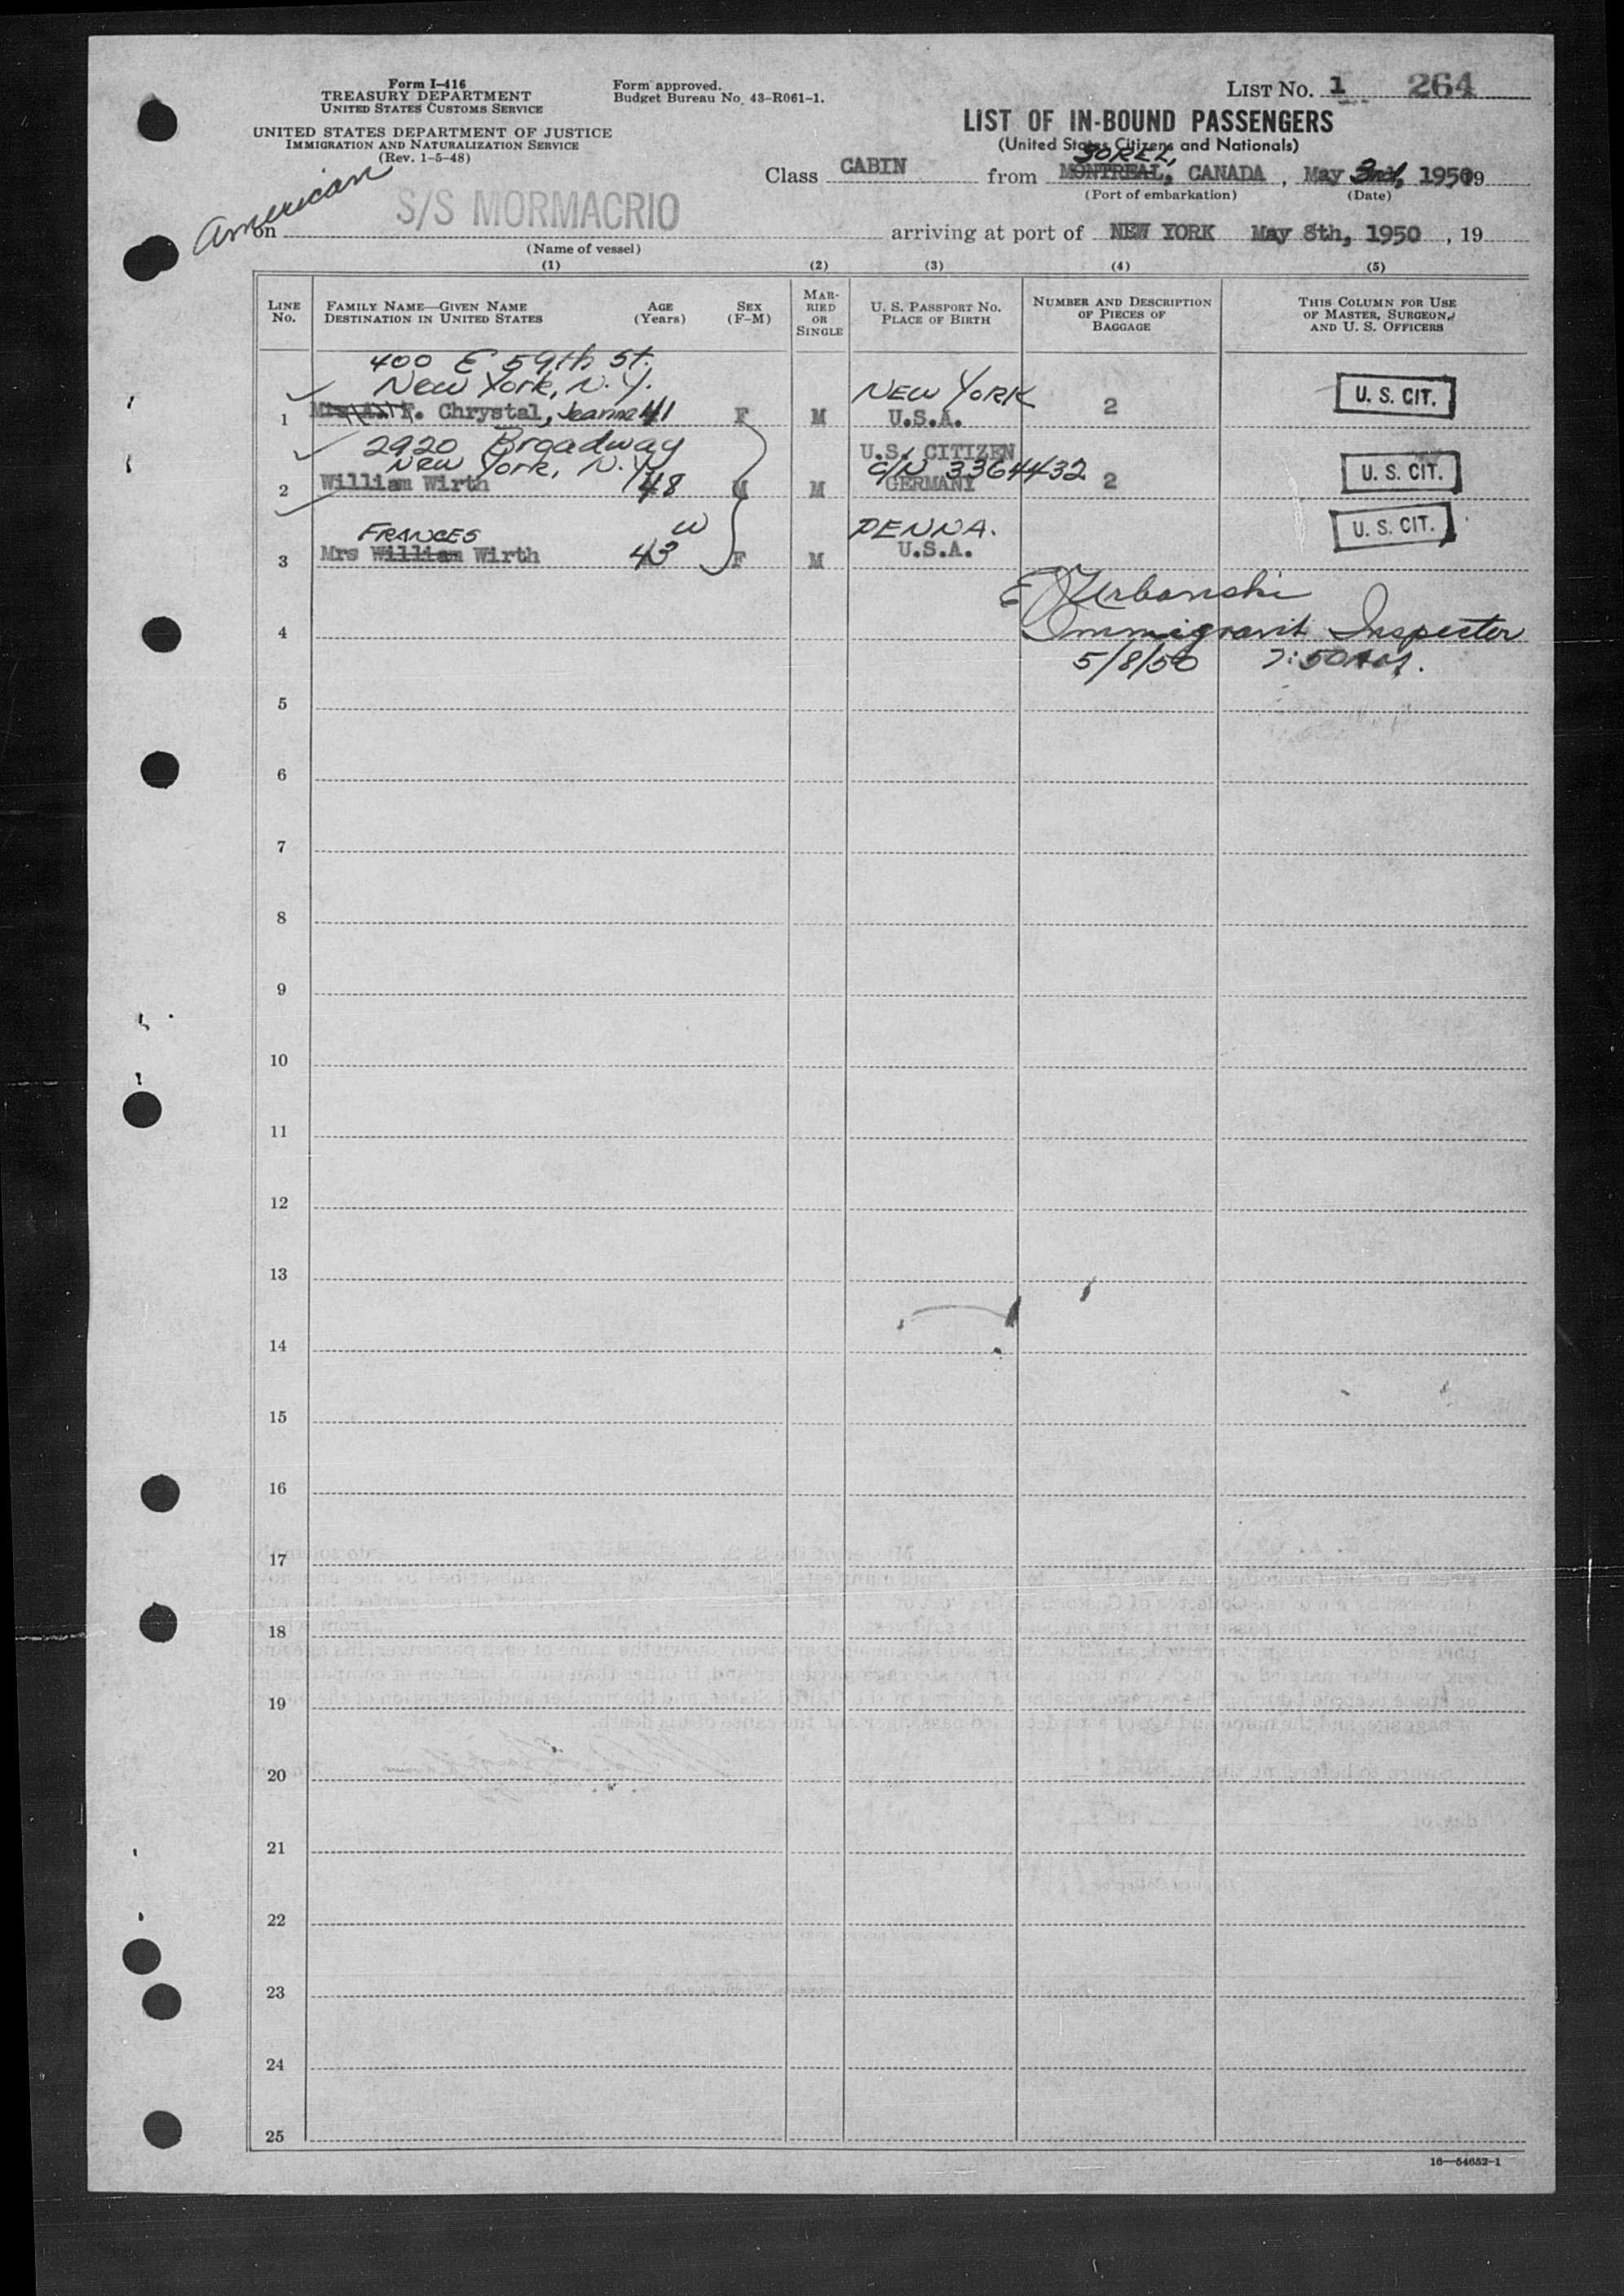 Form I-416
TREASURY DEPARTMENT
UNITED STATES CUSTOMS SERVICE
UNITED STATES DEPARTMENT OF JUSTICE
IMMIGRATION AND NATURALIZATION SERVICE
(Rev. 1-5-48)
Form approved.
Budget Bureau No. 43-R061-1.
LIST NO. 1 264
LIST OF IN-BOUND PASSENGERS
(United States Citizens and Nationals)
SOREL,
Class CABIN from MONTREAL, CANADA, May 3rd, 1950 19
(Port of embarkation) (Date)
American
on S/S MORMACRIO arriving at port of NEW YORK May 8th, 1950, 19
(Name of vessel)
(1) (2) (3) (4) (5)
LINE No.
FAMILY NAME—GIVEN NAME
DESTINATION IN UNITED STATES
AGE (Years)
SEX (F-M)
MARRIED OR SINGLE
U. S. PASSPORT NO.
PLACE OF BIRTH
NUMBER AND DESCRIPTION
OF PIECES OF
BAGGAGE
THIS COLUMN FOR USE
OF MASTER, SURGEON,
AND U. S. OFFICERS
400 E 59th St.
New York, N.Y. NEW YORK U. S. CIT.
1 F. Chrystal, Jeanne 41 F M U.S.A. 2
2920 Broadway U.S. CITIZEN
New York, N.Y. C/N 3364432 U. S. CIT.
2 William Wirth 48 M M GERMANY 2
FRANCES W PENNA. U. S. CIT.
3 Mrs William Wirth 43 F M U.S.A.
E J Urbanski
4 Immigrant Inspector
5/8/50 7:50 AM.
5
6
7
8
9
10
11
12
13
14
15
16
17
18
19
20
21
22
23
24
25
16—54652-1